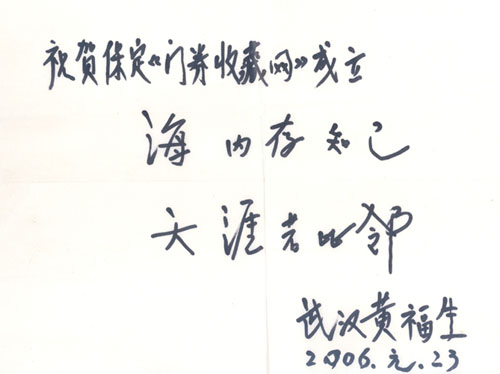 祝贺保定《门券收藏网》成立
海内存知己
天涯若比邻
武汉黄福生
2006.元.23